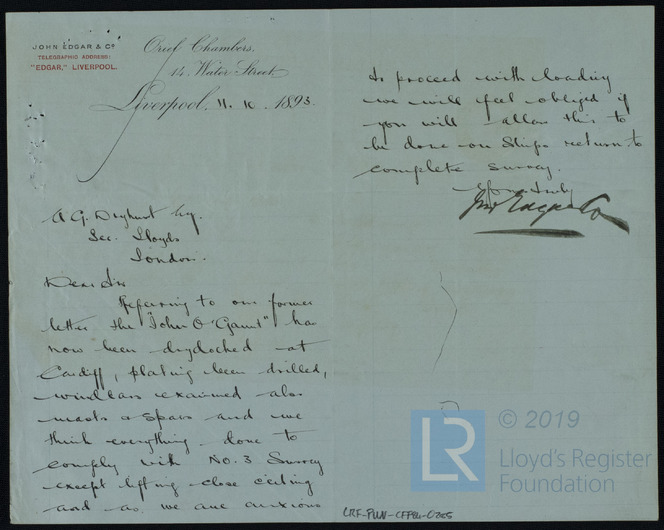 JOHN EDGAR & Co
TELEGRAPHIC ADDRESS:
"EDGAR," LIVERPOOL.
Oriel Chambers,
14 Water Street
Liverpool, 11. 10. 1893.
A G. Dryhurst Esq.
Sec. Lloyds
London.
Dear Sir
Referring to our former
letter the "John O'Gaunt" has
now been drydocked at
Cardiff, plating been drilled,
windlass examined also
masts & spars and we
think everything done to
comply with No. 3 Survey
except lifting close ceiling
and as we are anxious
to proceed with loading
we will feel obliged if
you will allow this to
be done on Ships return to
complete survey.
Yours truly
Jno Edgar & Co
© 2019
LR
Lloyd's Register
Foundation